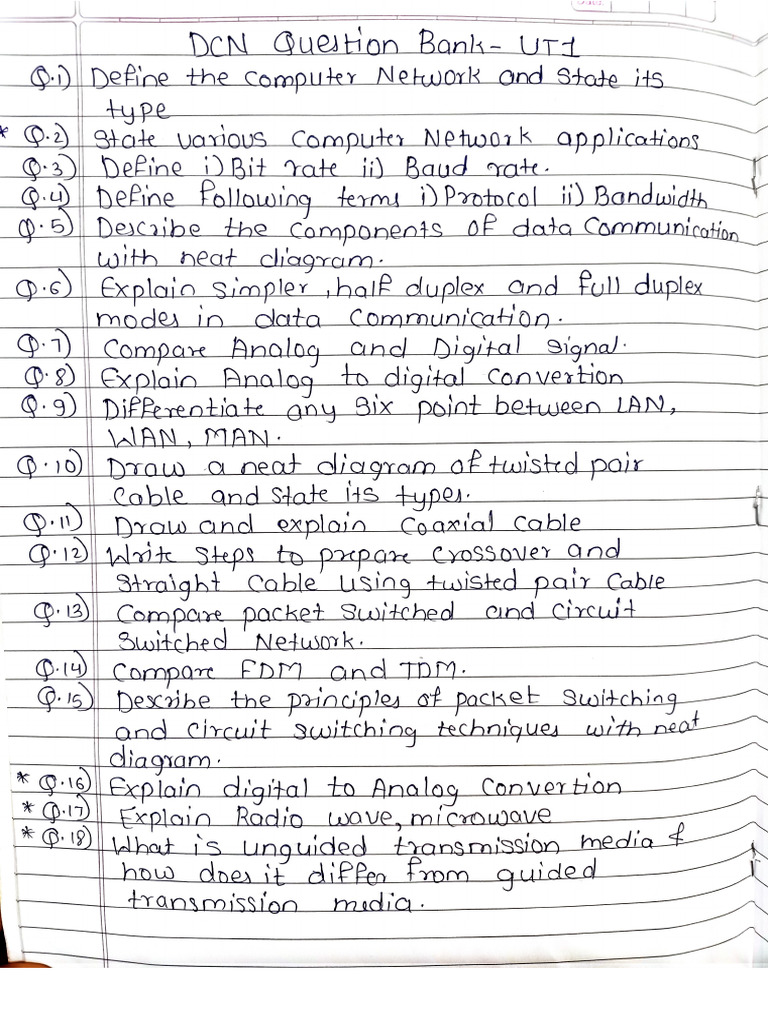 DCN Question Bank - UT1
Q.1) Define the Computer Network and State its
type
* Q.2) State various Computer Network applications
Q.3) Define i) Bit rate ii) Baud rate.
Q.4) Define following terms i) Protocol ii) Bandwidth
Q.5) Describe the Components of data Communication
with neat diagram.
Q.6) Explain Simpler, half duplex and full duplex
modes in data Communication.
Q.7) Compare Analog and Digital Signal.
Q.8) Explain Analog to digital Convertion
Q.9) Differentiate any six point between LAN,
WAN, MAN.
Q.10) Draw a neat diagram of twisted pair
Cable and State its types.
Q.11) Draw and explain Coaxial Cable
Q.12) Write Steps to prepare Crossover and
Straight Cable using twisted pair Cable
Q.13) Compare packet Switched and Circuit
Switched Network.
Q.14) Compare FDM and TDM.
Q.15) Describe the principles of packet Switching
and Circuit Switching techniques with neat
diagram.
* Q.16) Explain digital to Analog Convertion
* Q.17) Explain Radio wave, microwave
* Q.18) What is unguided transmission media &
how does it differ from guided
transmission media.